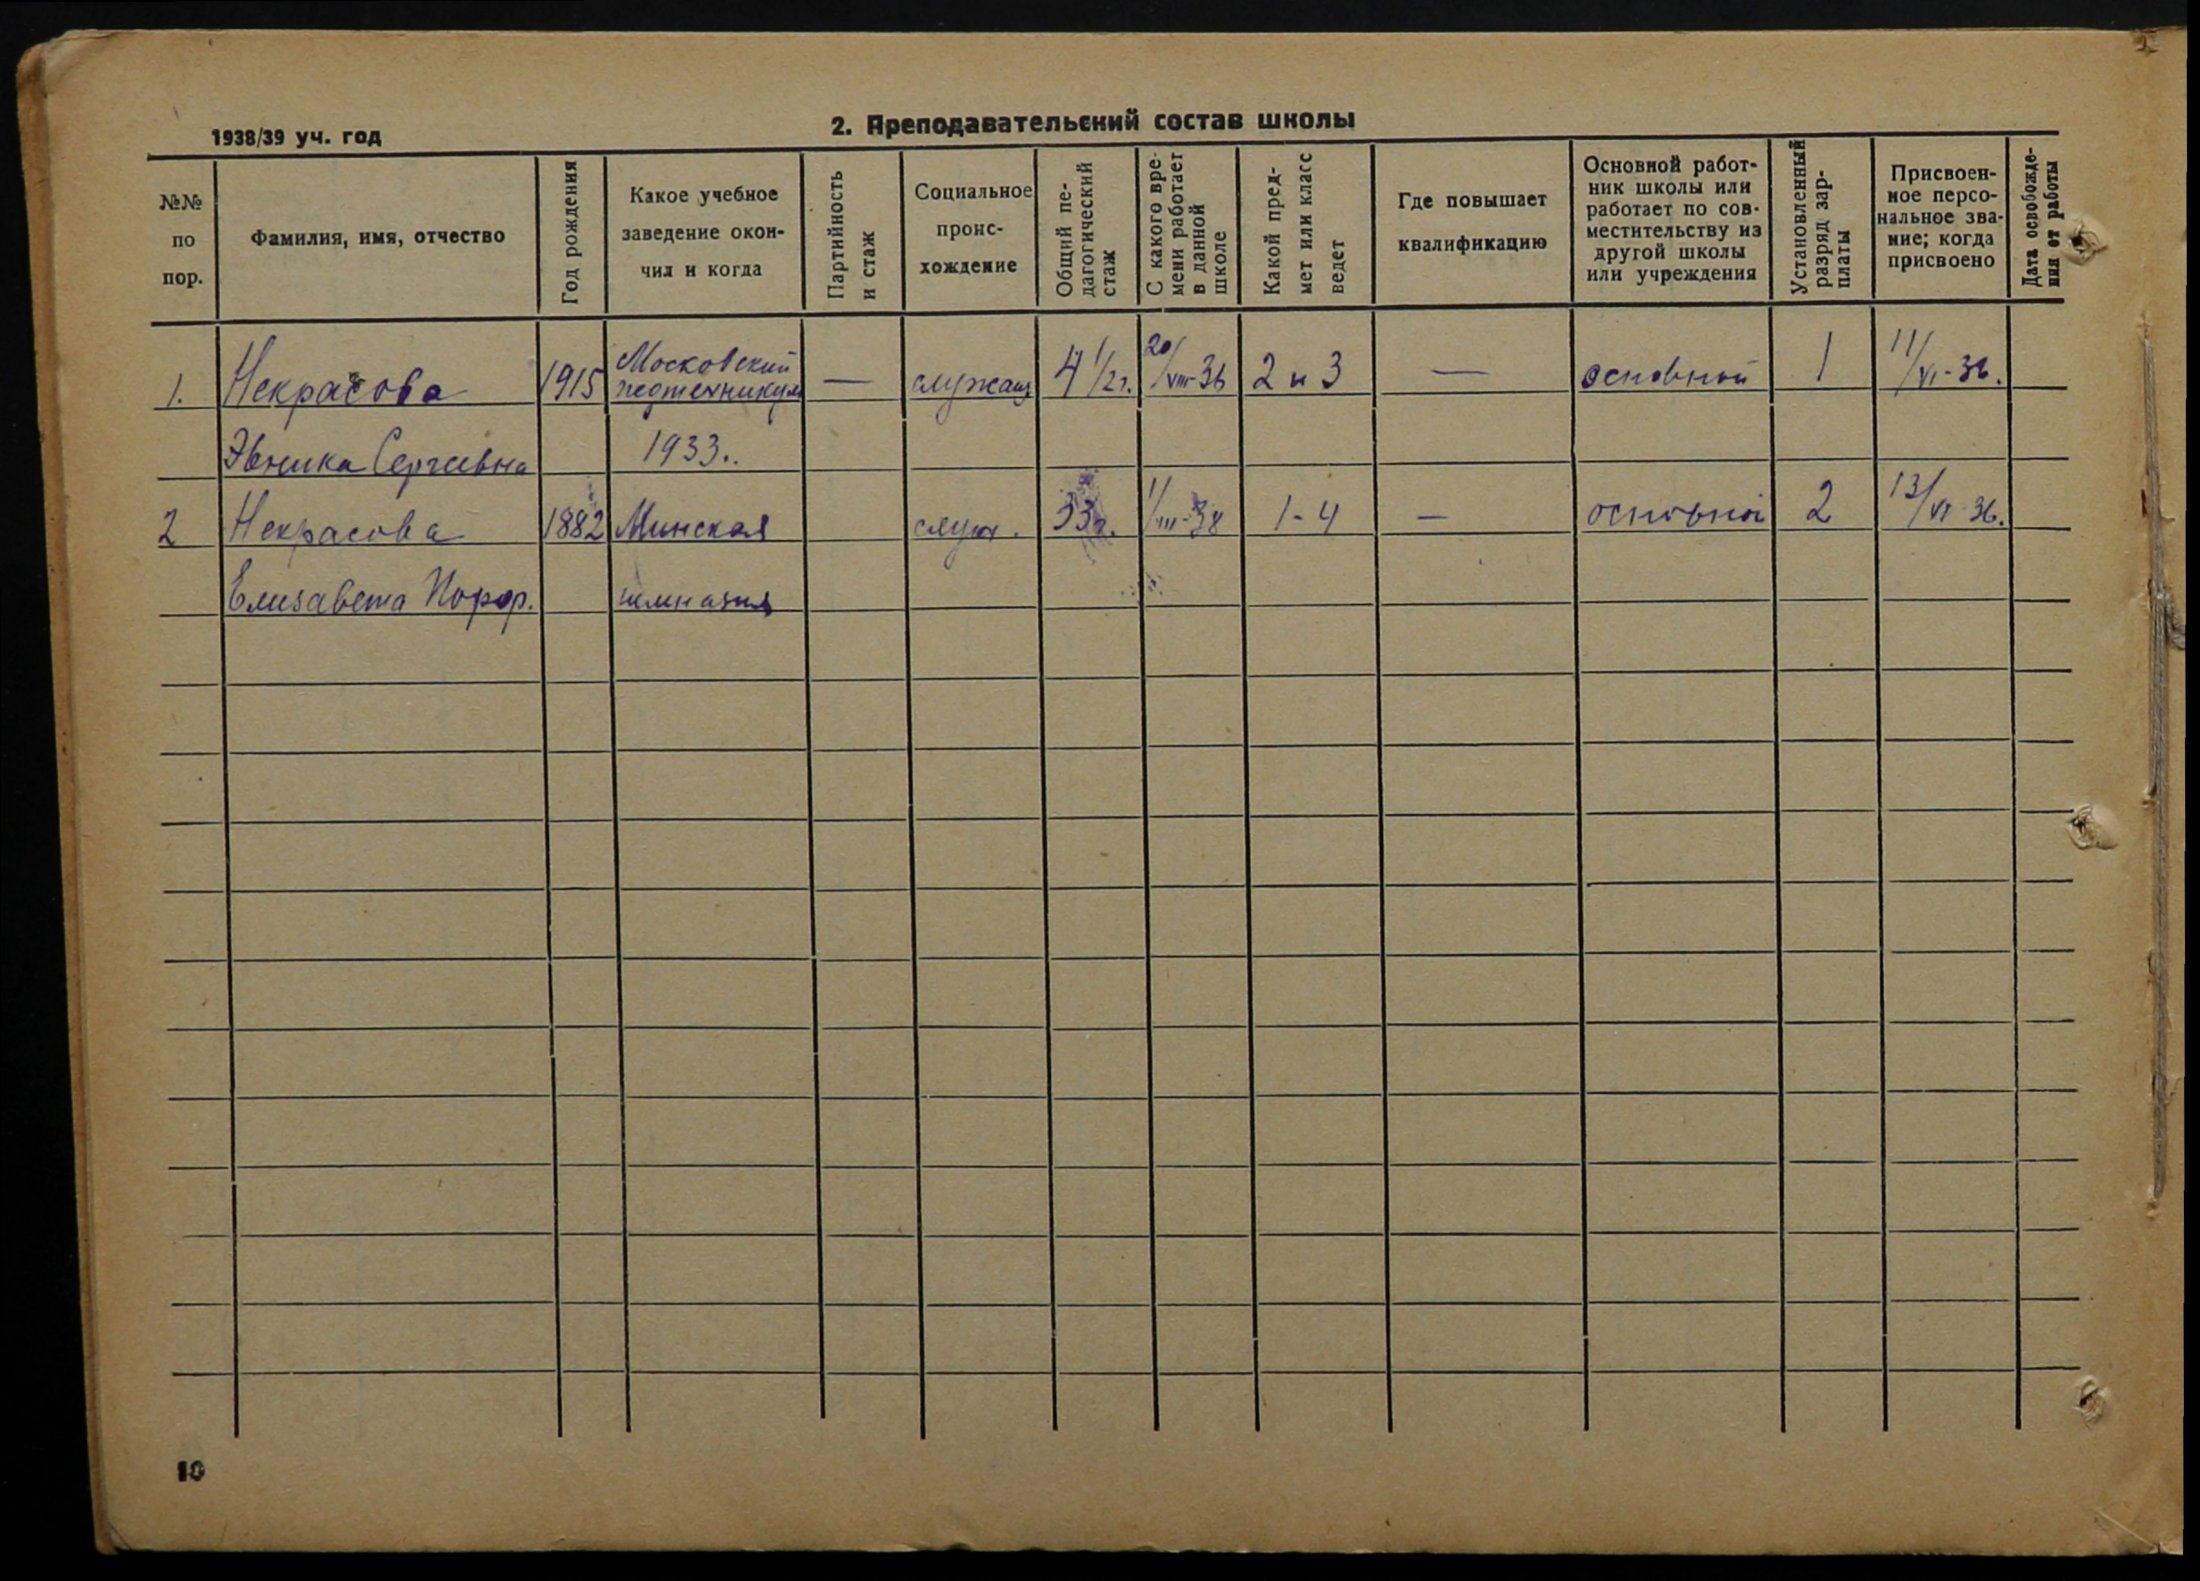 1938/39 уч. год
2. Преподавательский состав школы
№№ по пор.
Фамилия, имя, отчество
Год рождения
Какое учебное заведение окон-
чил и когда
Партийность и стаж
Социальное проис-
хождение
Общий пе-
дагогический стаж
С какого вре-
мени работает в данной школе
Какой пред-
мет или класс ведет
Где повышает квалификацию
Основной работ-
ник школы или работает по сов-
местительству из другой школы или учреждения
Установленный разряд зар-
платы
Присвоен-
ное персо-
нальное зва-
ние; когда присвоено
Дата освобожде-
ния от работы
1. Некрасова 1915 Московский педтехникум — служащ 4 1/2 г. 20/VIII-36 2 и 3 — основной 1 11/VI-36.
Эвника Сергеевна 1933..
2 Некрасова 1882 Минская служ. 33 г. 1/III-38 1-4 — основной 2 13/VI-36.
Елизавета гимназия
10